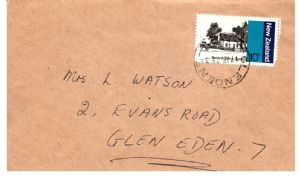 New Zealand
10
Mrs. L WATSON
2, EVANS ROAD
GLEN EDEN. 7